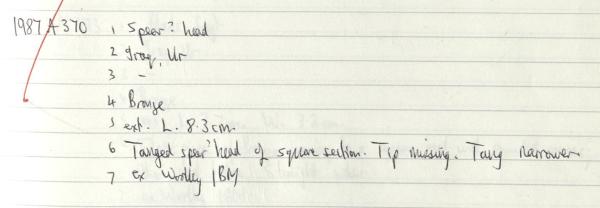 1987.A370 1 Spear? head
2 Iraq, Ur
3 -
4 Bronze
5 ext. L. 8.3cm.
6 Tanged spear? head of square section. Tip missing. Tang narrower
7 ex Woolley / BM